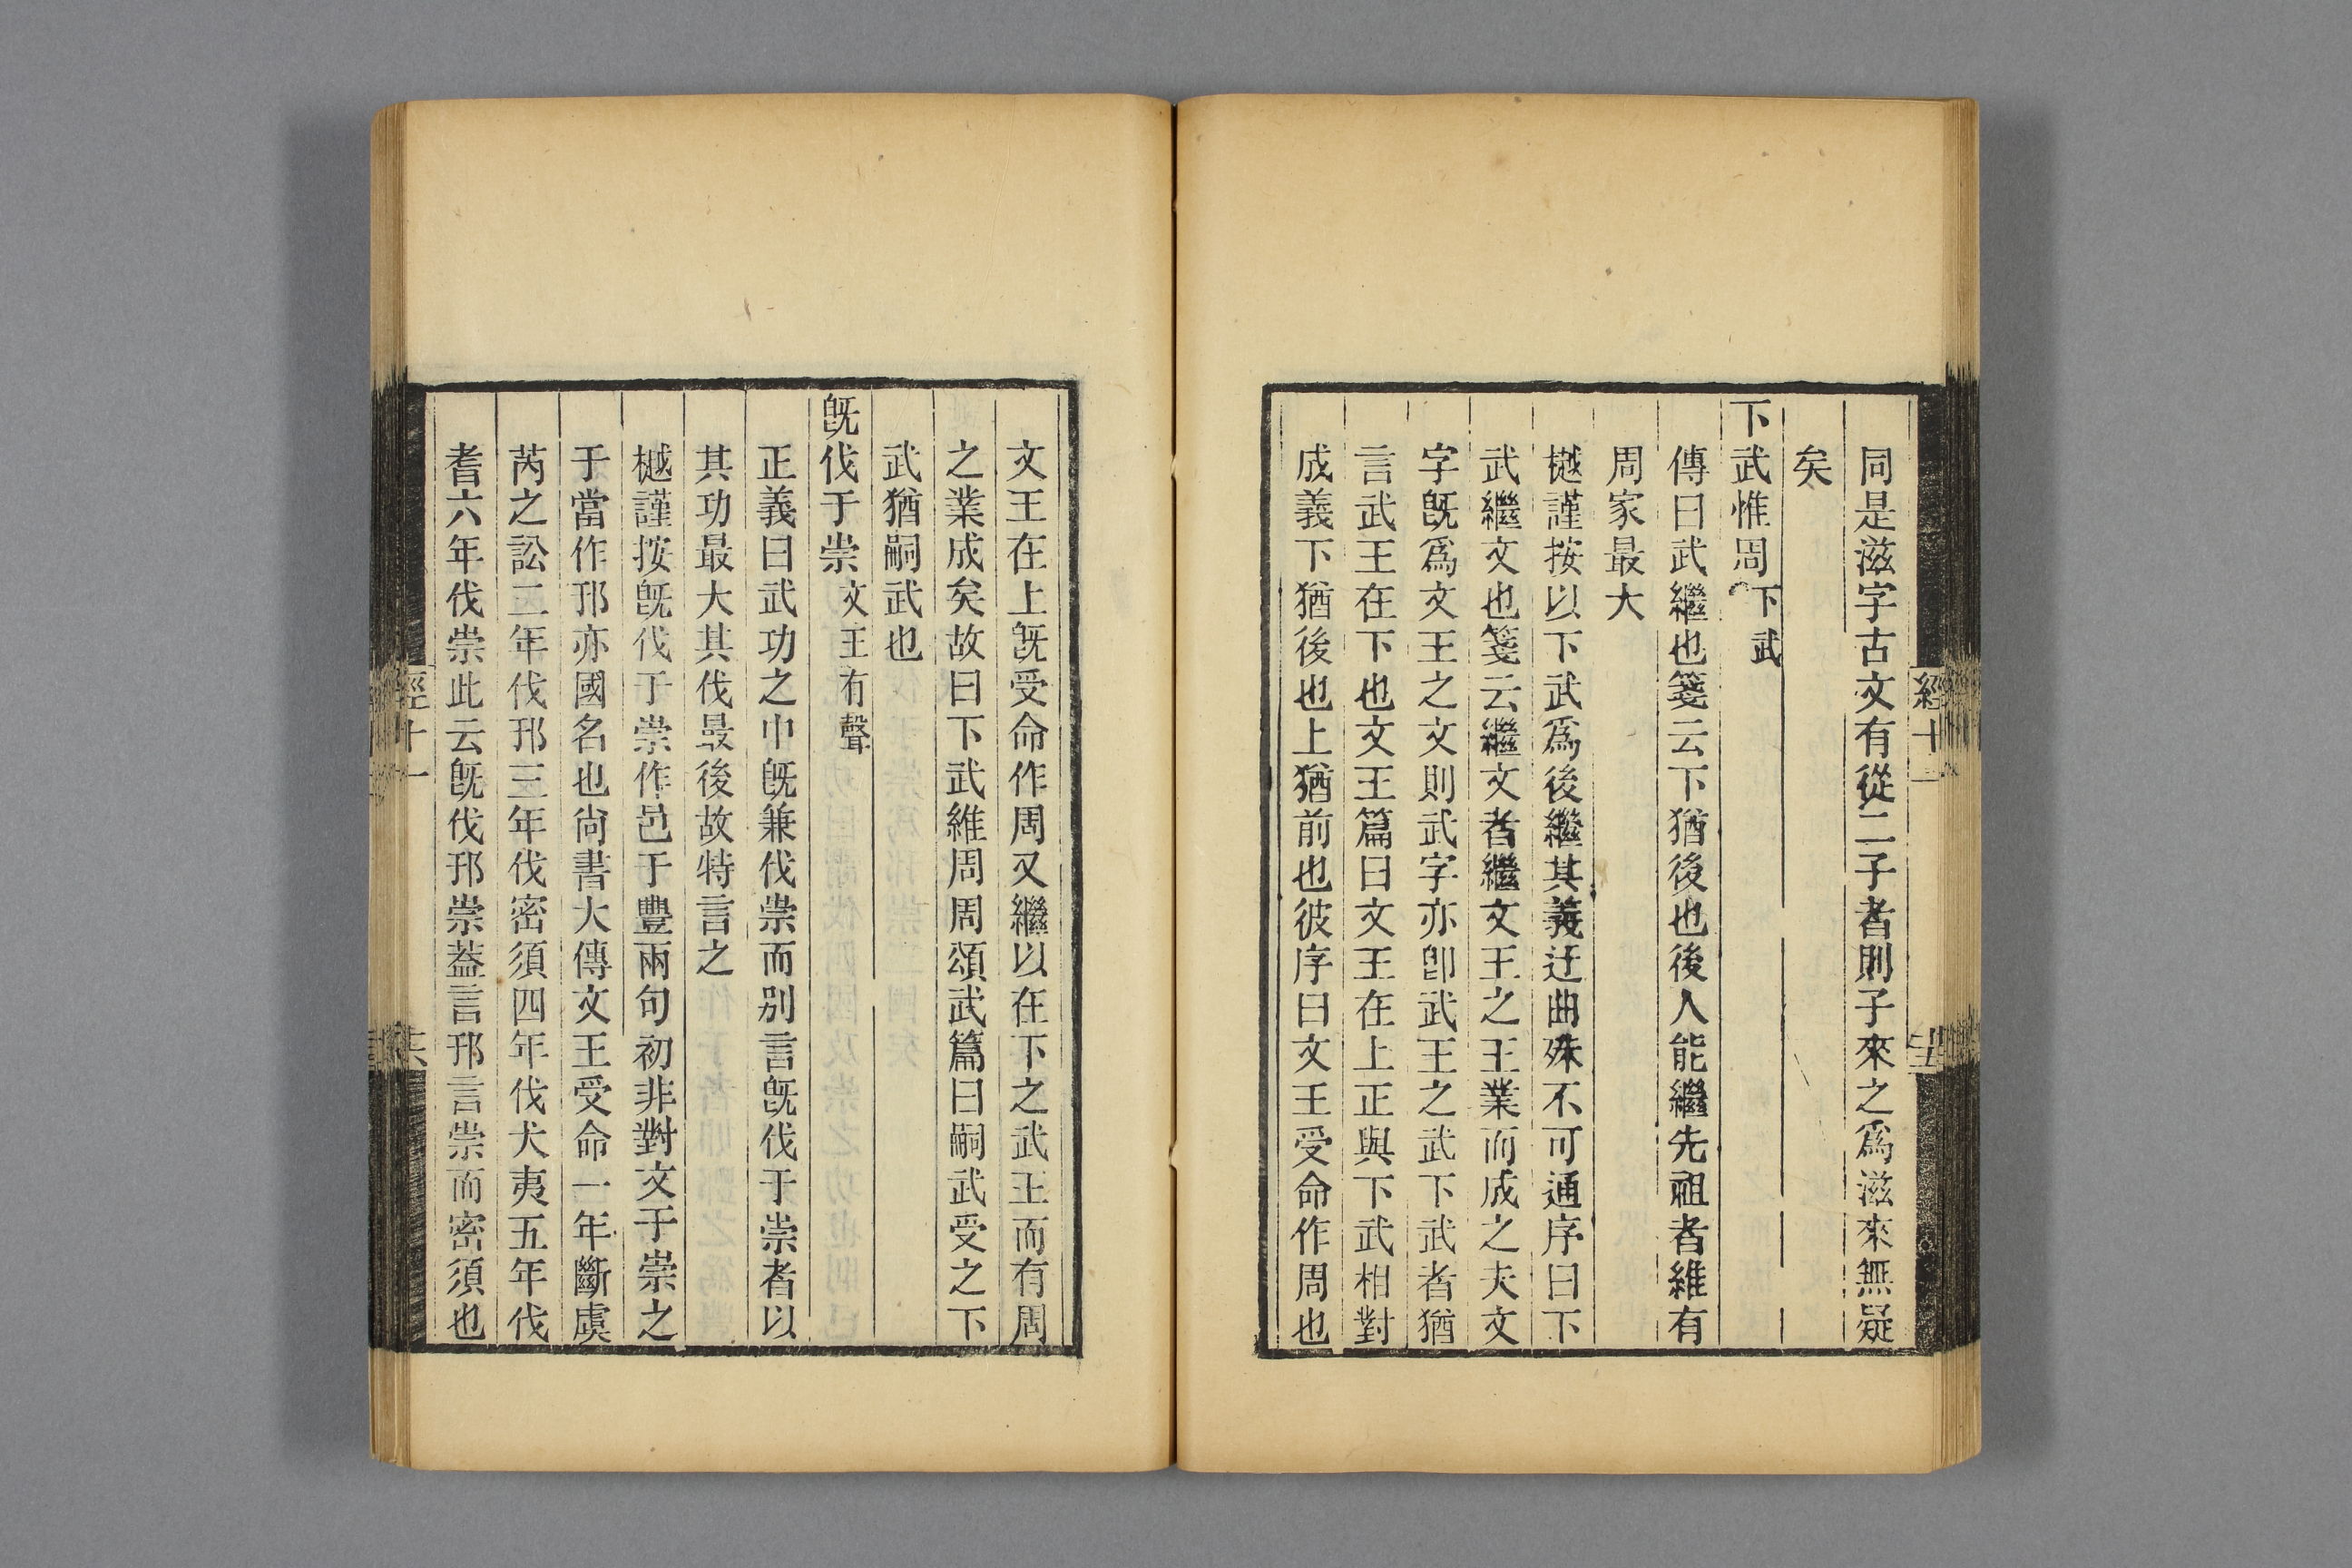 同是滋字古文有從二子者則子來之爲滋來無疑
矣
下武惟周下武
傳曰武繼也箋云下猶後也後人能繼先祖者維有
周家最大
樾謹按以下武爲後繼其義迂曲殊不可通序曰下
武繼文也箋云繼文者繼文王之王業而成之夫文
字旣爲文王之文則武字亦卽武王之武下武者猶
言武王在下也文王篇曰文王在上正與下武相對
成義下猶後也上猶前也彼序曰文王受命作周也
經十一
文王在上旣受命作周又繼以在下之武王而有周
之業成矣故曰下武維周周頌武篇曰嗣武受之下
武猶嗣武也
旣伐于崇文王有聲
正義曰武功之中旣兼伐崇而別言旣伐于崇者以
其功最大其伐最後故特言之
樾謹按旣伐于崇作邑于豐兩句初非對文于崇之
于當作邘亦國名也尙書大傳文王受命一年斷虞
芮之訟二年伐邘三年伐密須四年伐犬夷五年伐
耆六年伐崇此云旣伐邘崇葢言邘言崇而密須也
經十一